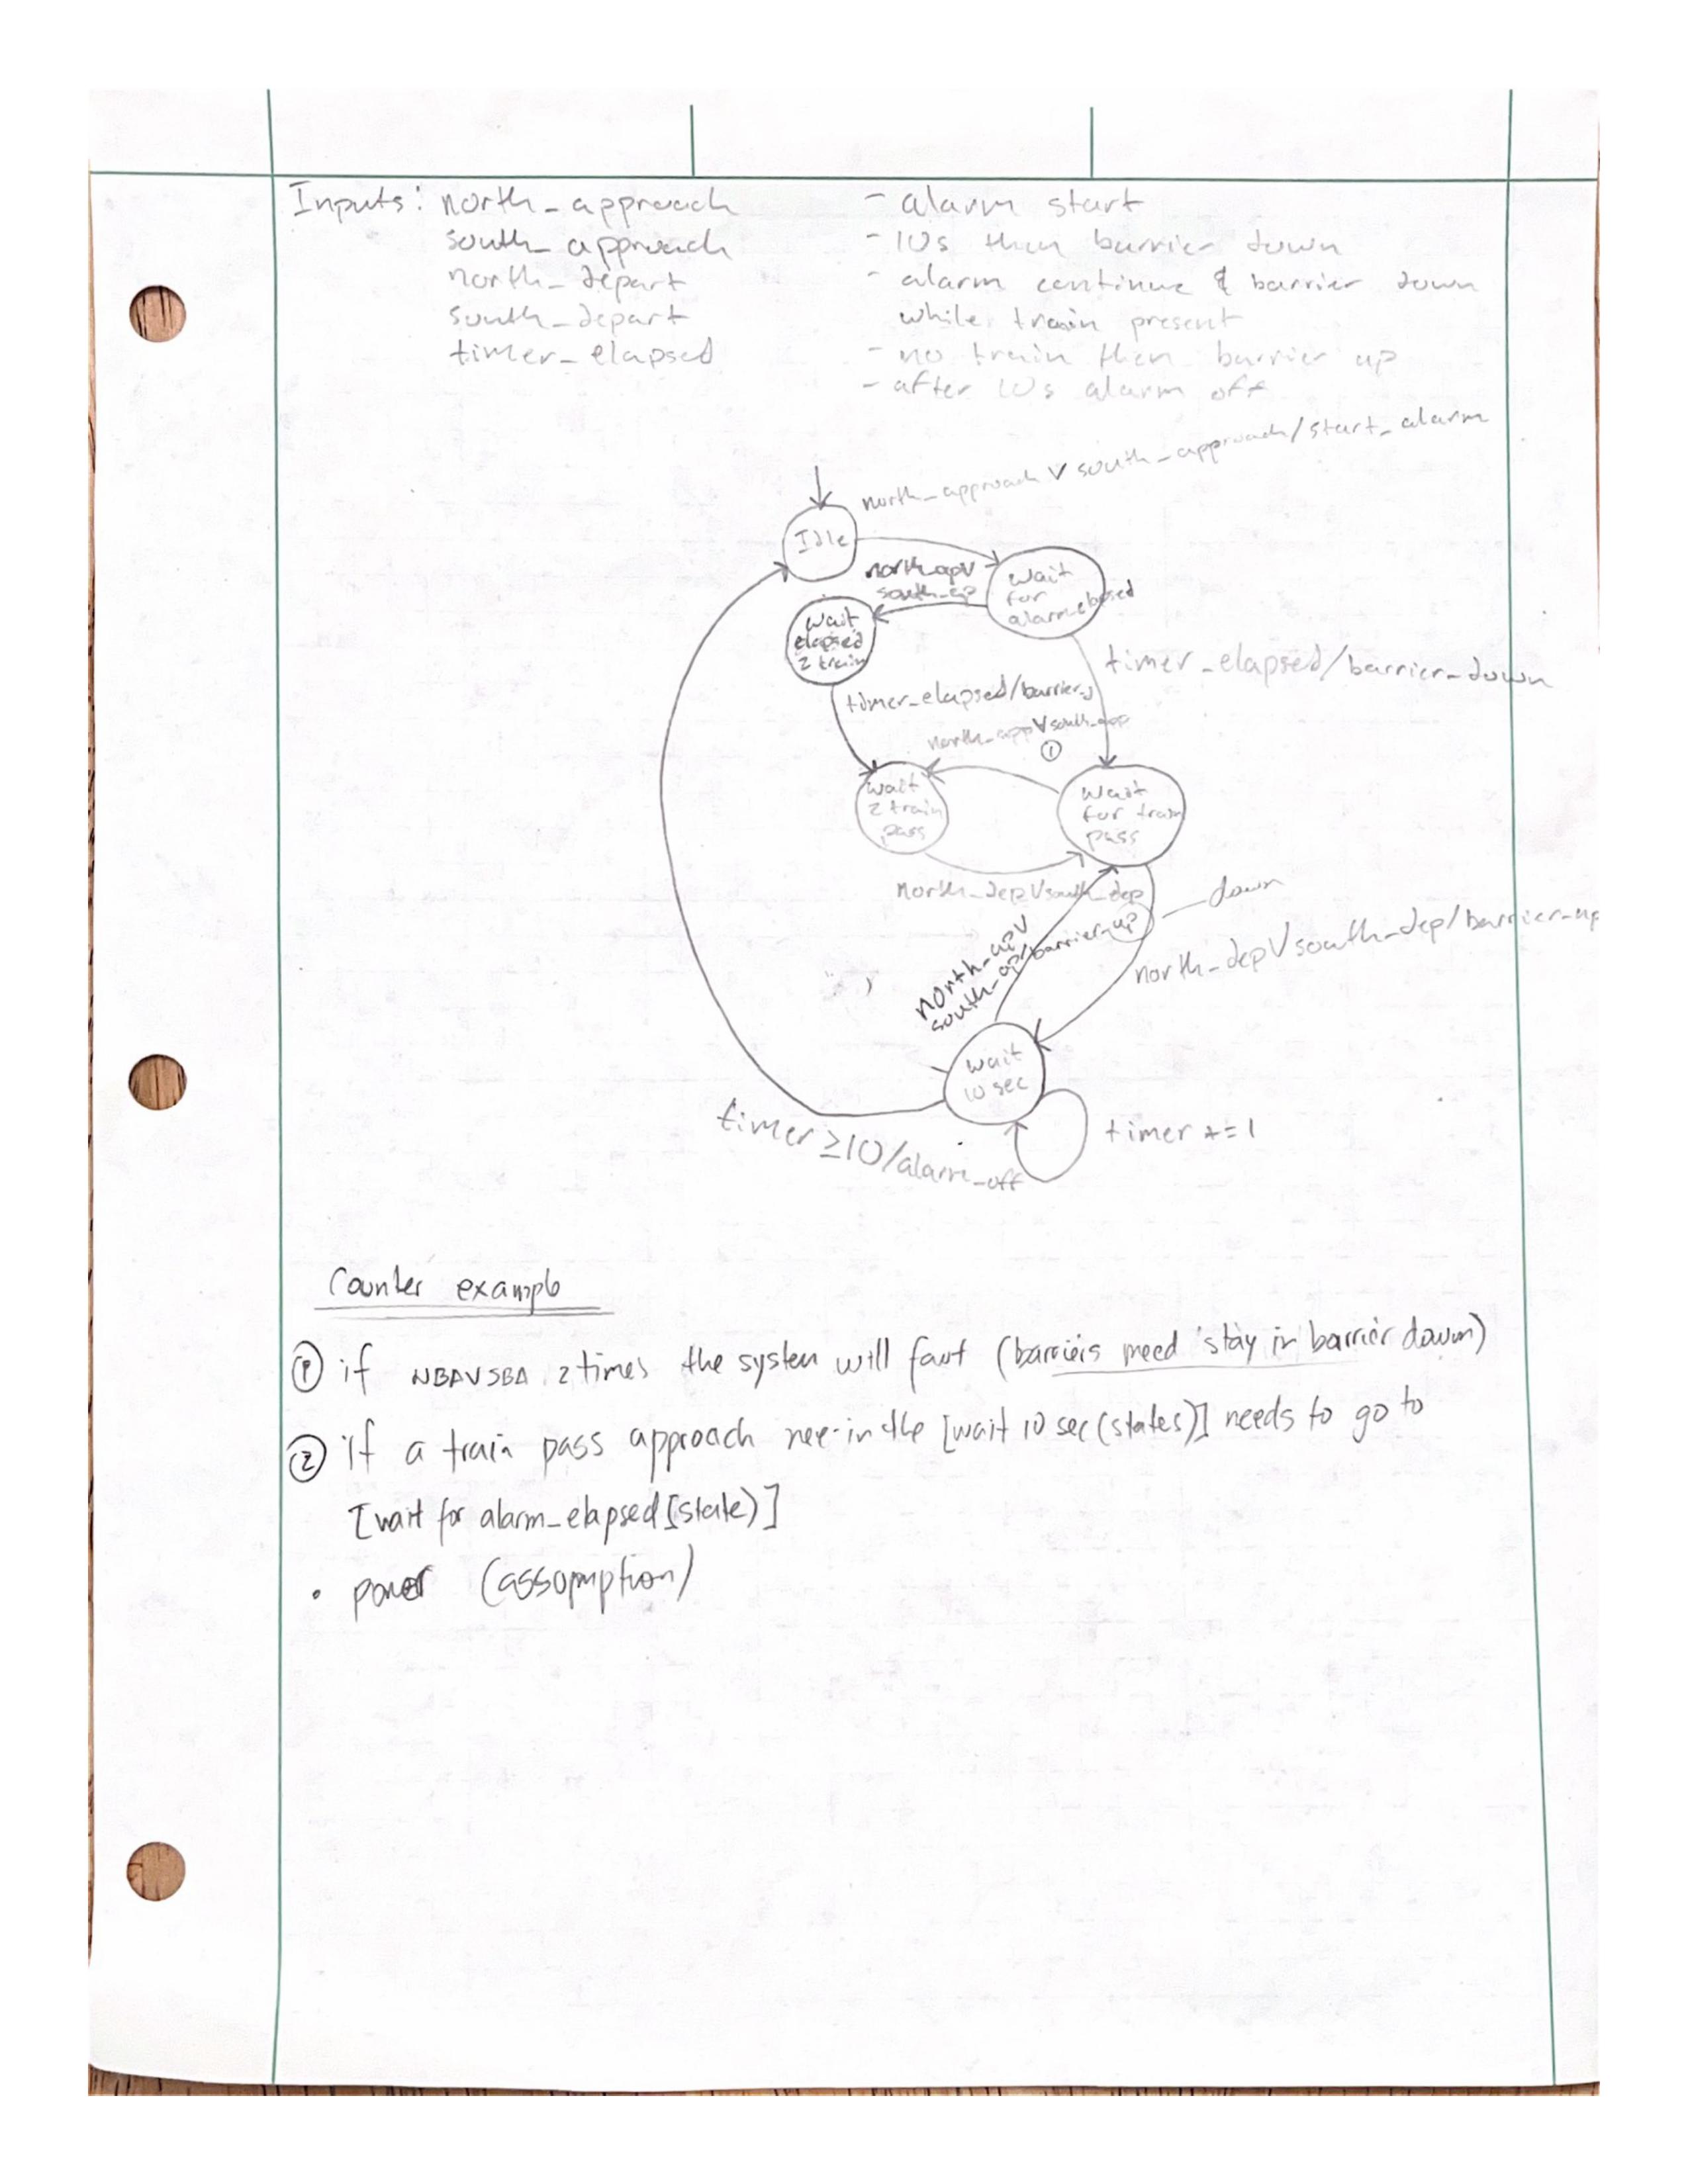 Inputs: north_approach
south_approach
north_depart
south_depart
timer_elapsed
- alarm start
- 10s then barrier down
- alarm continue & barrier down
while train present
- no train then barrier up
- after 10s alarm off
north_approach V south_approach/start_alarm
Idle
north_apV
south_ap
wait
for
alarm_elapsed
wait
elapsed
2 train
timer_elapsed/barrier-down
timer_elapsed/barrier_d
north_appVsouth_app
①
wait
2 train
pass
wait
for train
pass
north_depVsouth_dep
down
north_apV
south_ap/barrier_up
north_depVsouth_dep/barrier-up
wait
10 sec
timer ≥10/alarm_off
timer +=1
Counter example
① if NBAVSBA 2 times the system will (barriers need stay in barrier down)
② if a train pass approach in the [wait 10 sec (states)] needs to go to
[wait for alarm_elapsed[state)]
• power (assopmption)